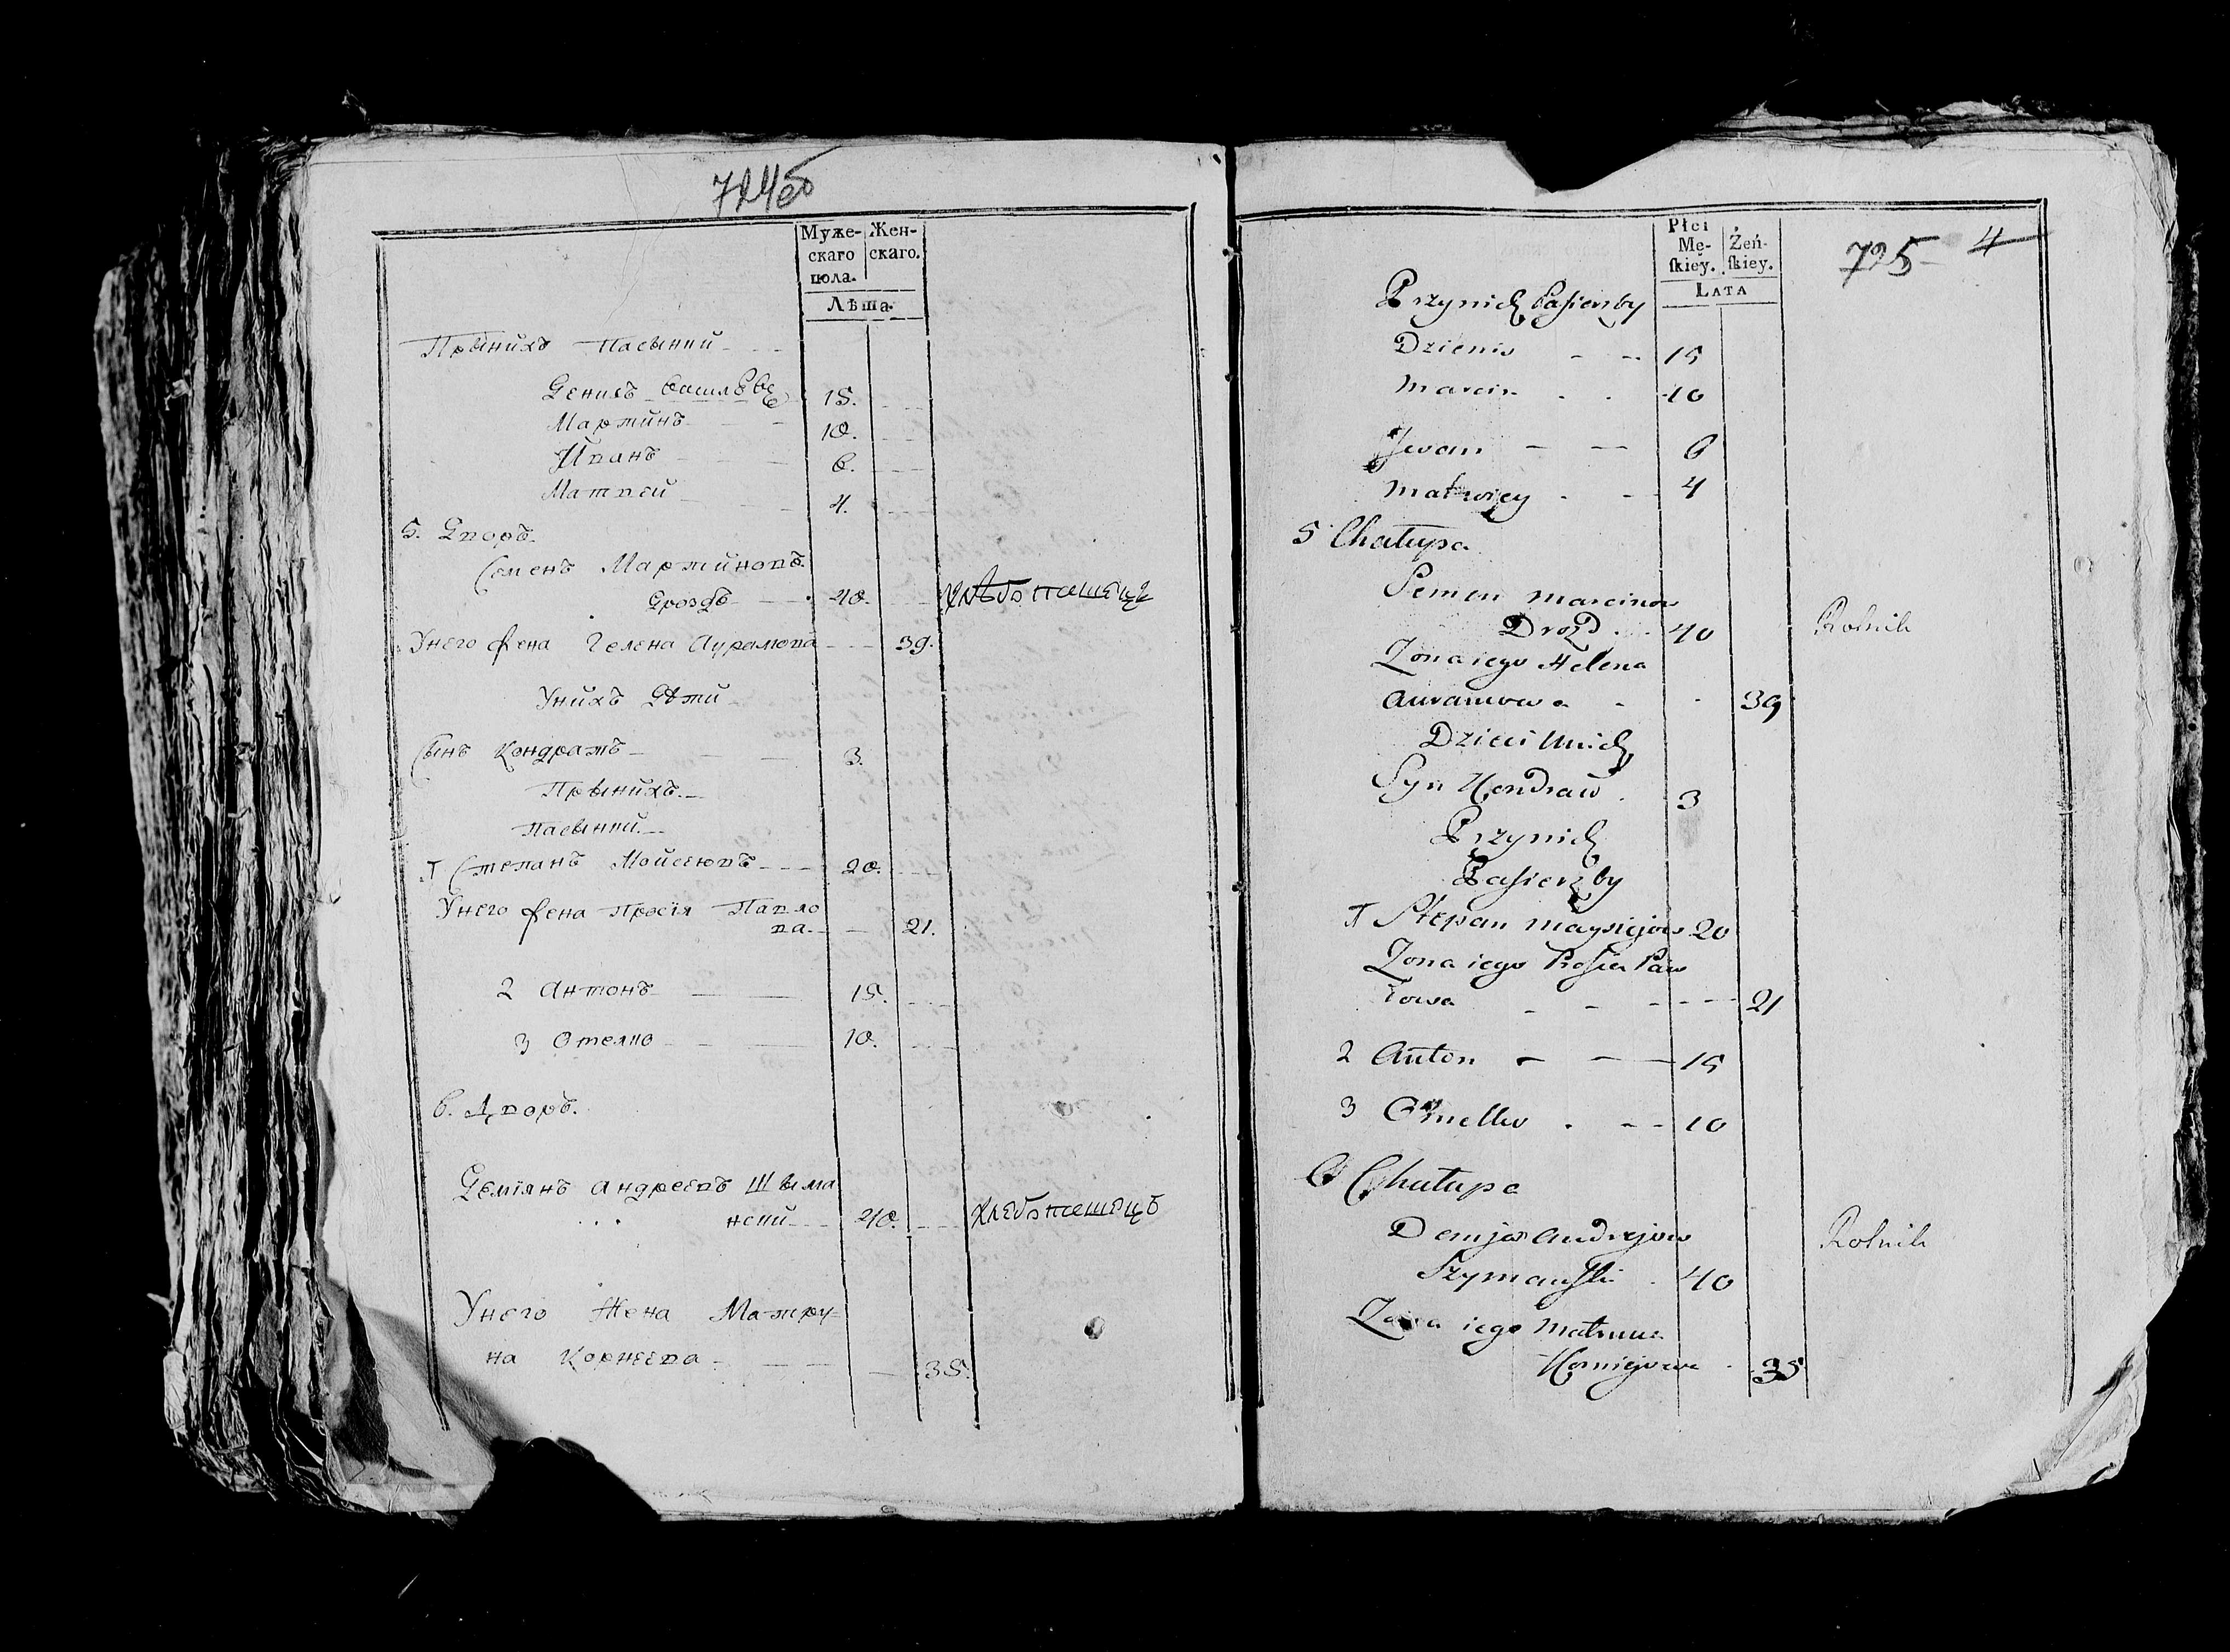 724об
Муже-
скаго
пола.
Жен-
скаго.
Лѣта.
Прыниxъ пасынки
Денисъ
15.
Мартинъ
10.
Иванъ
6.
Матвей
4.
5. Дворъ.
Семенъ Мартиновъ
Дроздъ
40.
хлѣбопашецъ
Унего жена Гелена Аурамова
39.
Униxъ Дѣти
Сынъ Кондратъ
3.
Прыниxъ
пасынки
1 Степанъ Мойсеювъ
20.
Унего жена Просiя Павло
ва
21.
2 Антонъ
15.
3 Омелко
10.
6. Дворъ.
Демiянъ Андреевъ Шыма
нски
40.
хлебопашецъ
Унего Жена Матру=
на Корнеева
35.
Płci
Mę-
ſkiey.
Żeń-
ſkiey.
LATA
725 4
Przynich Pasierzby
Dzienis 15
Marcin 10
Jwan 6
Matwiey 4
5 Chatupa
Semen Marcinow
Drozd 40
Rolnik
Zona iego Helena
Auramowa 39
Dzieci Unich
Syn Kondrat 3
Przynich
Pasierzby
1 Stepan Maysiejow 20
Zona iego Prosia Paw
łowa 21
2 Anton 15
3 Omelko 10
6 Chatupa
Demjan Andrejow
Rolnik
Szymanski 40
Zona iego Matruna
Korniejowa 35